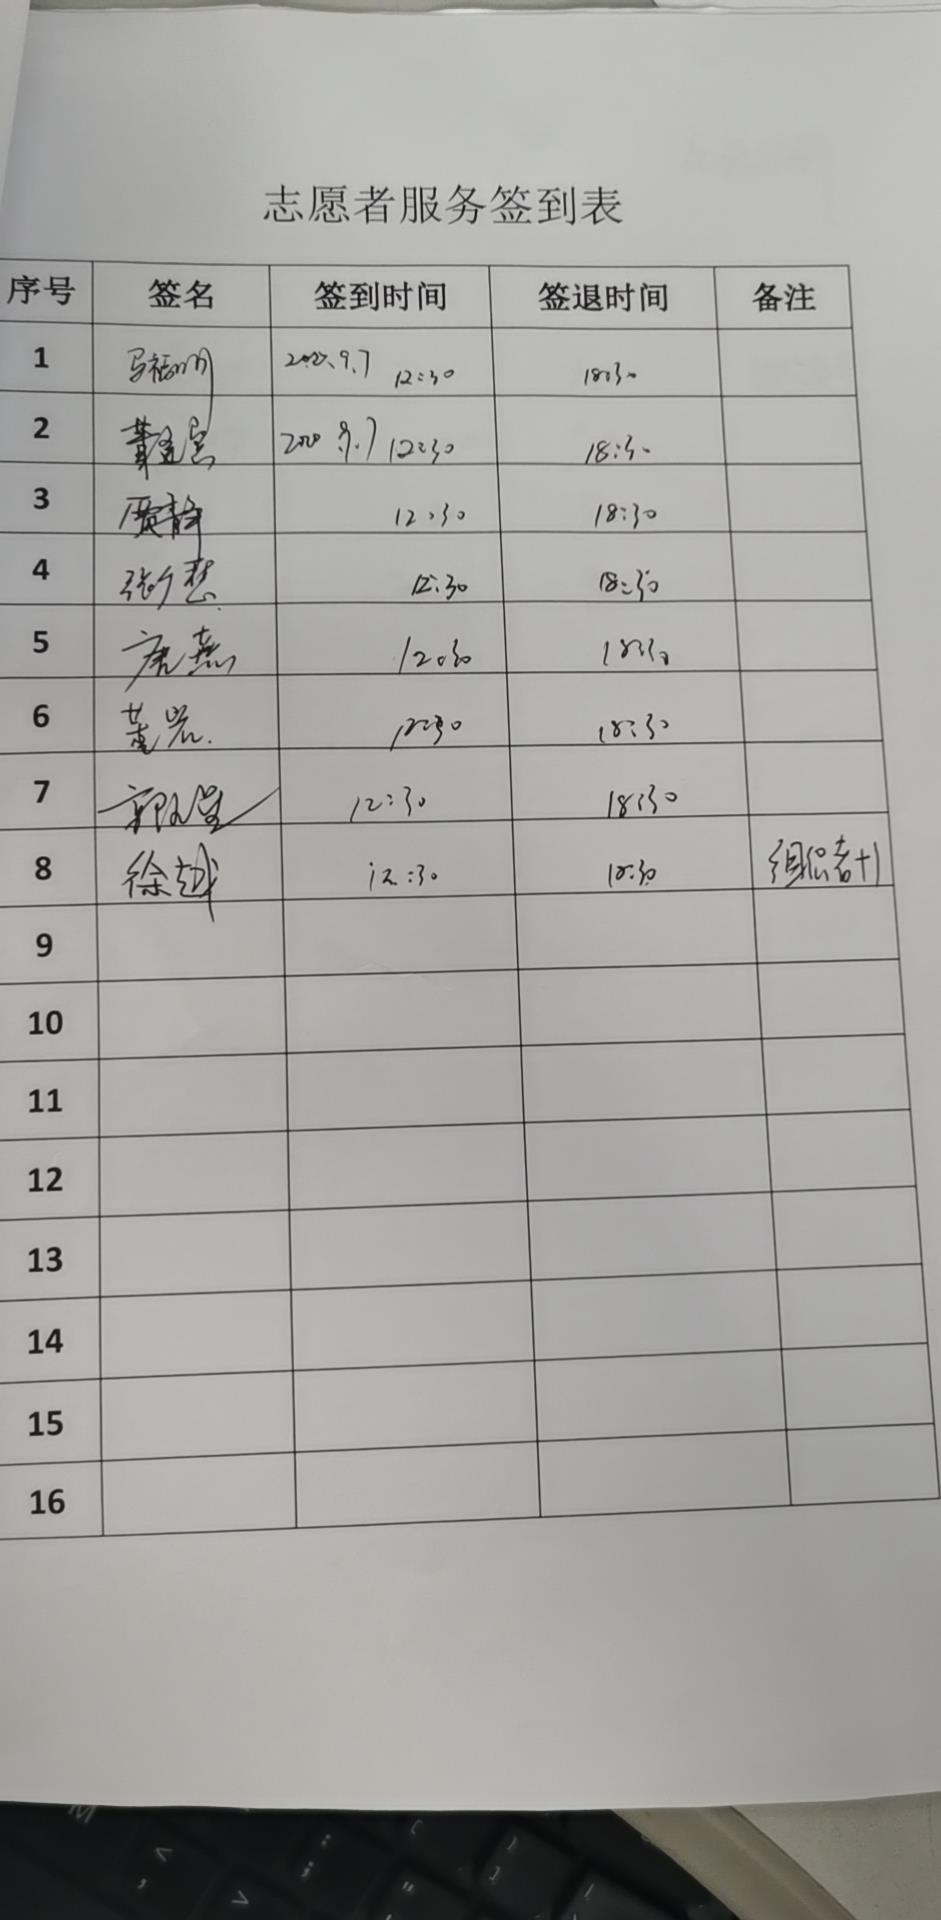 志愿者服务签到表
序号 签名 签到时间 签退时间 备注
1 2020.9.7 12:30 18:30
2 2020 9.7 12:30 18:30
3 贾静 12:30 18:30
4 张 12:30 18:30
5 唐燕 12:30 18:30
6 董岩 12:30 18:30
7 郭 12:30 18:30
8 徐越 12:30 18:30 组织者+1
9
10
11
12
13
14
15
16